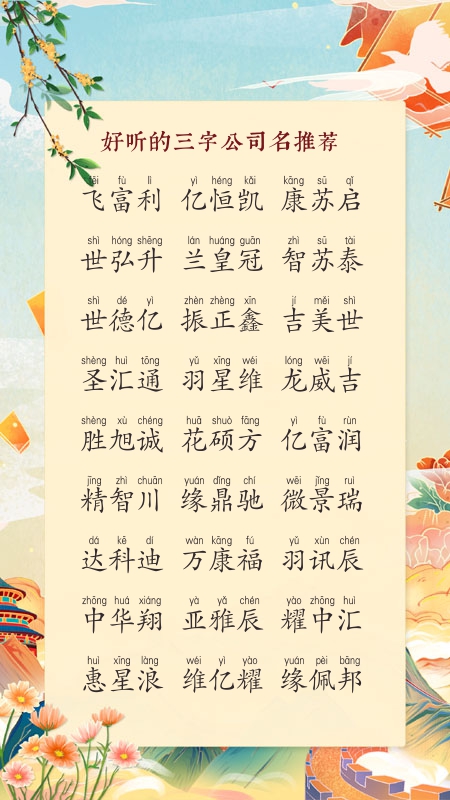 好听的三字公司名推荐
fēi fù lì yì héng kǎi kāng sū qǐ
飞富利 亿恒凯 康苏启
shì hóng shēng lán huáng guān zhì sū tài
世弘升 兰皇冠 智苏泰
shì dé yì zhèn zhèng xīn jí měi shì
世德亿 振正鑫 吉美世
shèng huì tōng yǔ xīng wéi lóng wēi jí
圣汇通 羽星维 龙威吉
shèng xù chéng huā shuò fāng yì fù rùn
胜旭诚 花硕方 亿富润
jīng zhì chuān yuán dǐng chí wēi jǐng ruì
精智川 缘鼎驰 微景瑞
dá kē dí wàn kāng fú yǔ xùn chén
达科迪 万康福 羽讯辰
zhōng huá xiáng yà yǎ chén yào zhōng huì
中华翔 亚雅辰 耀中汇
huì xīng làng wéi yì yào yuán pèi bāng
惠星浪 维亿耀 缘佩邦